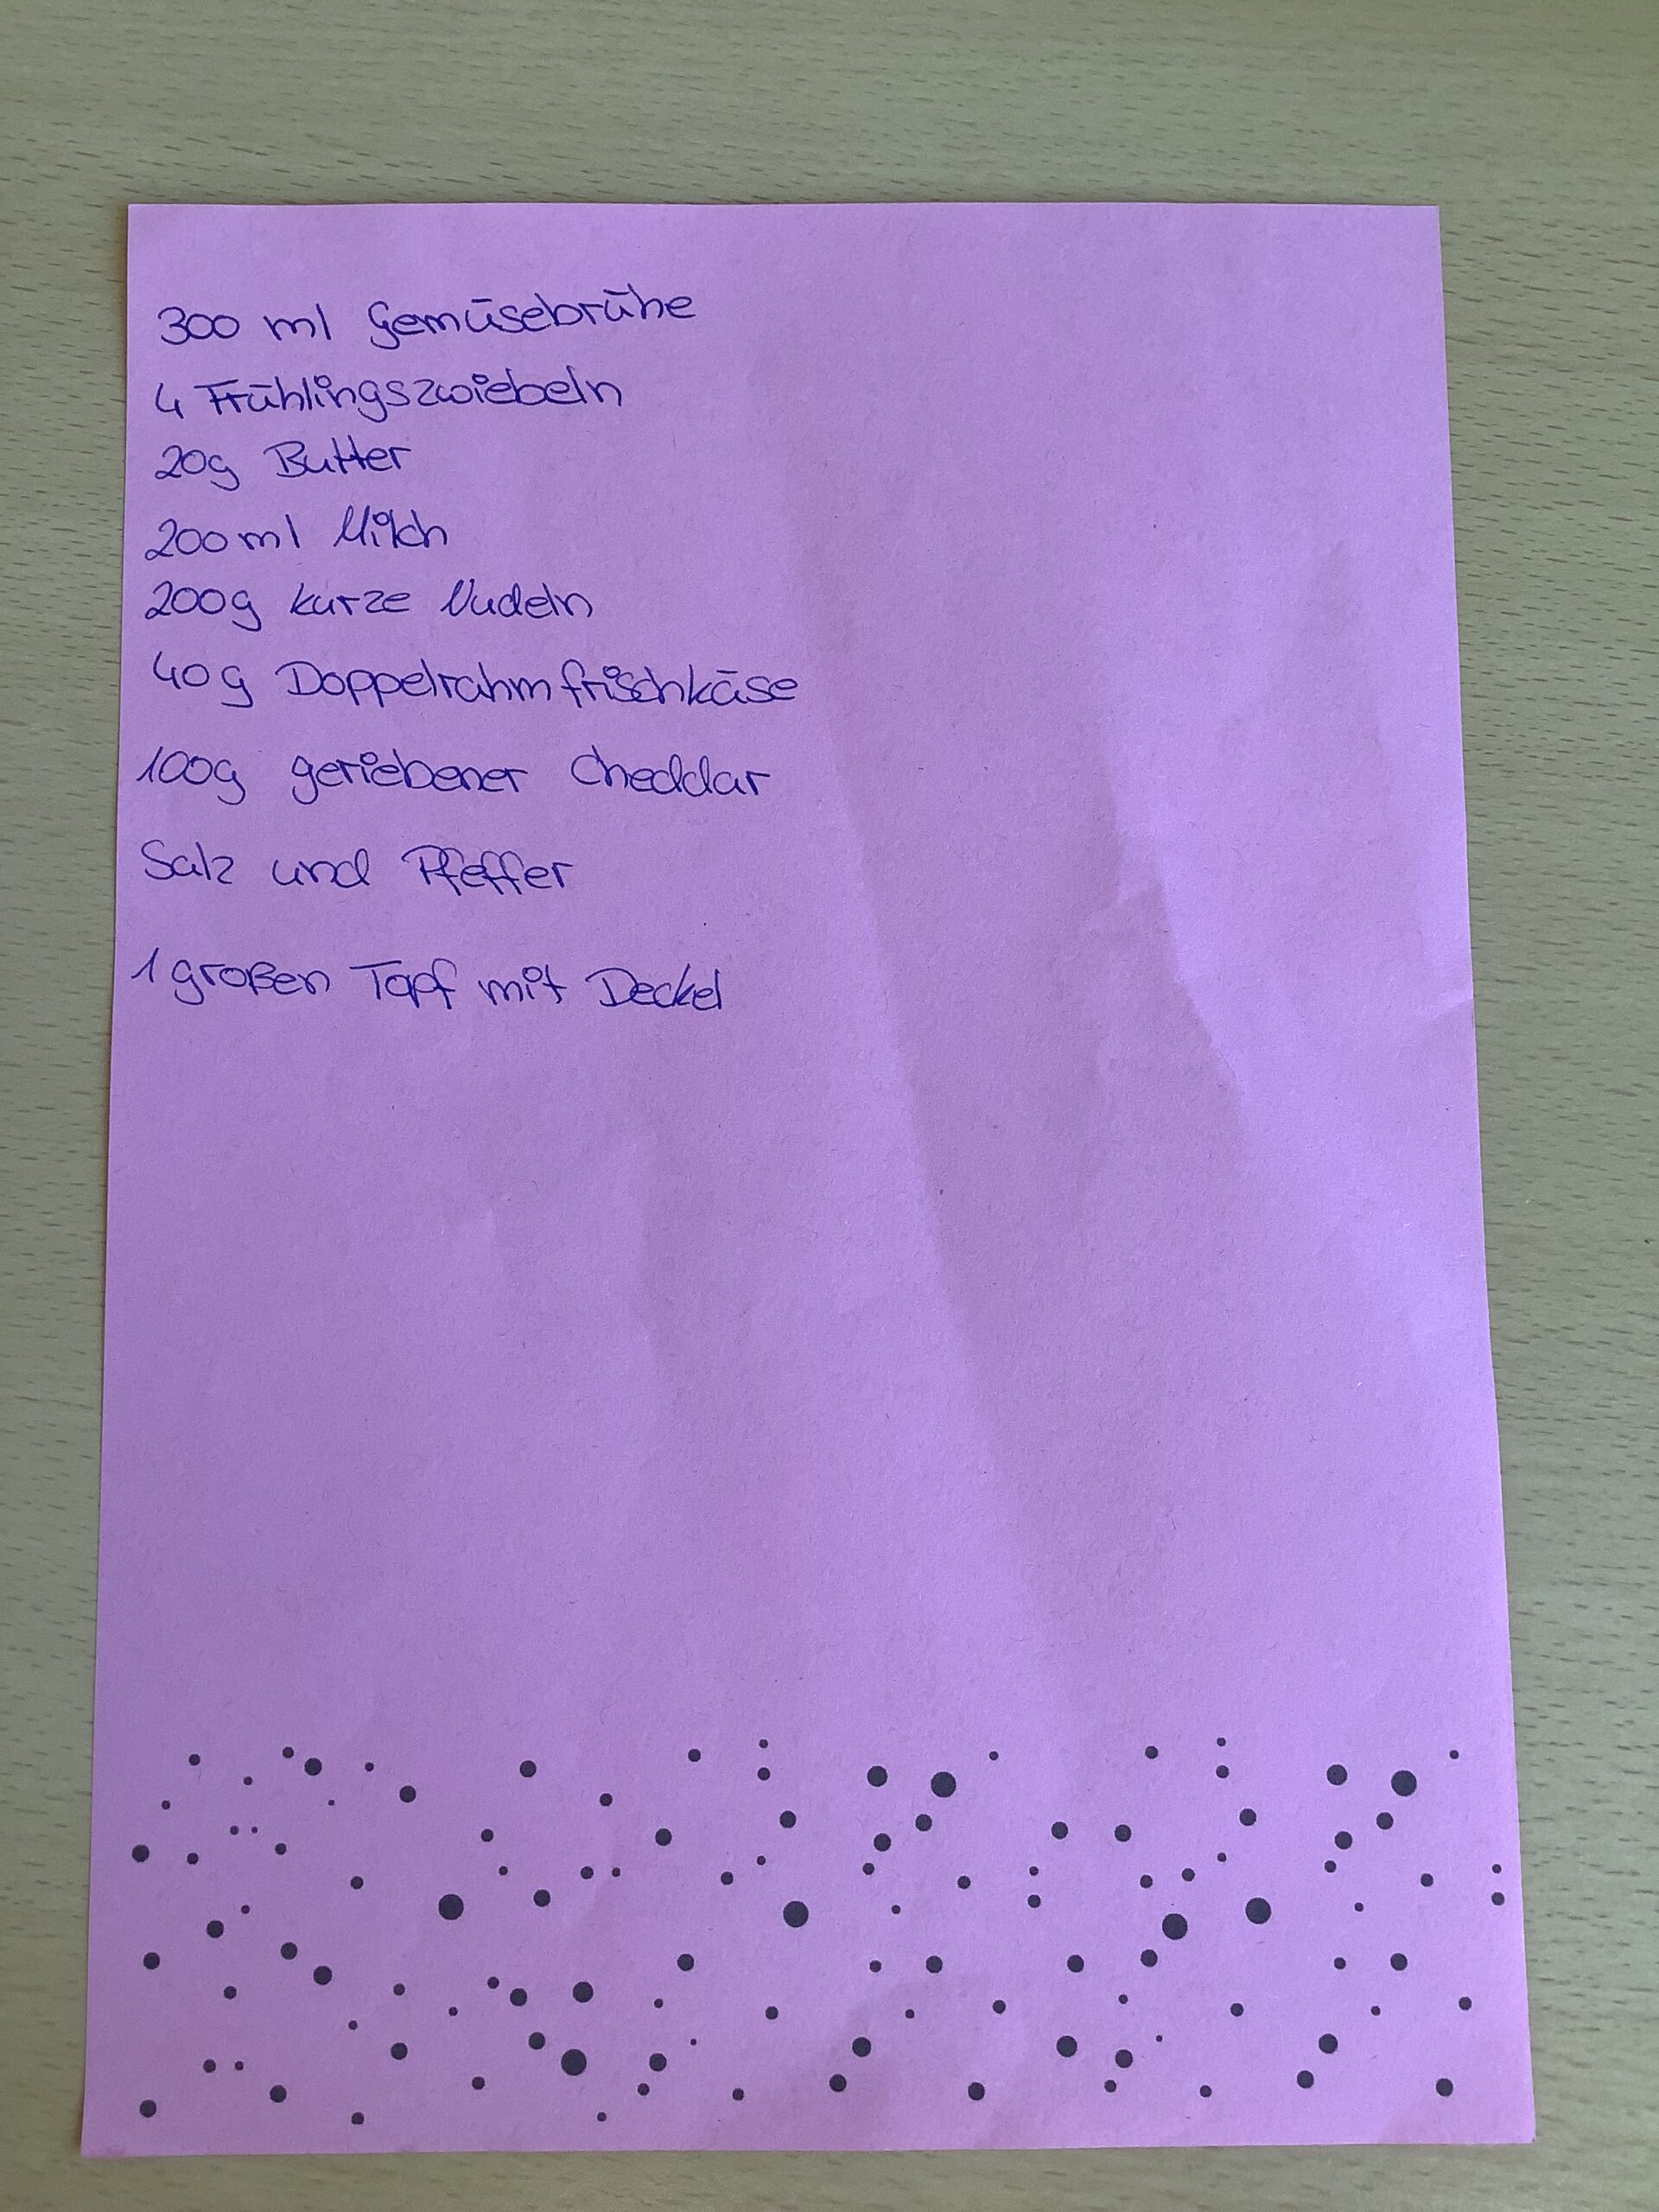 300 ml Gemüsebrühe
4 Frühlingszwiebeln
20g Butter
200ml Milch
200g kurze Nudeln
40g Doppelrahmfrischkäse
100g geriebener Cheddar
Salz und Pfeffer
1 großen Topf mit Deckel